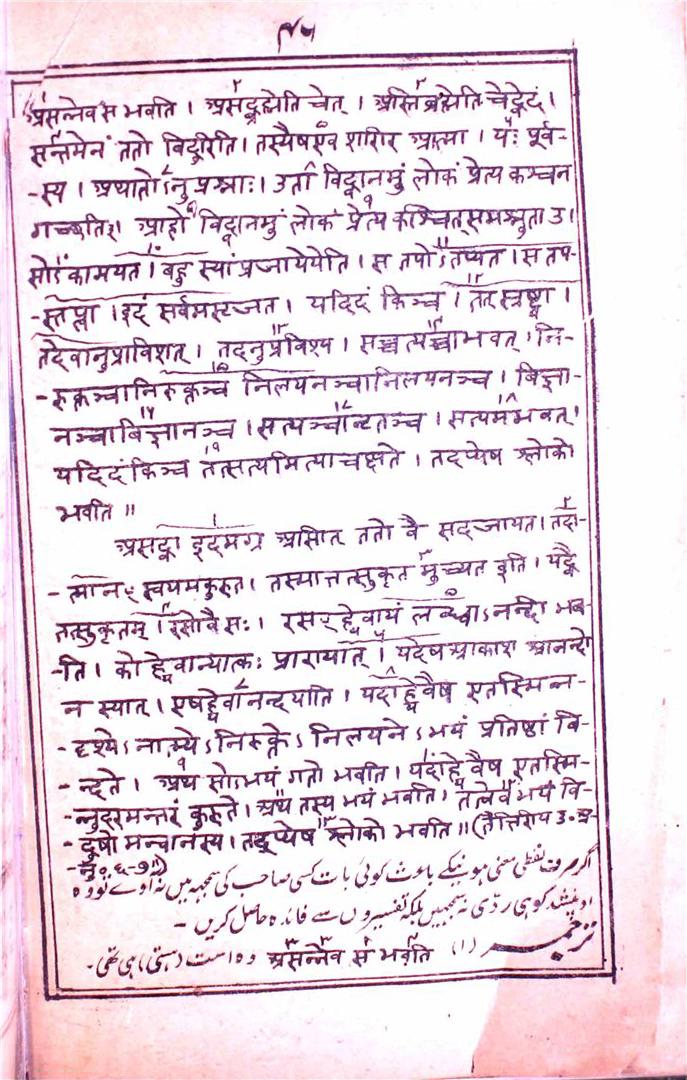 ९५
असन्नेव स भवति । असद्ब्रह्मेति चेत् । अस्ति ब्रह्मेति चेद्वेदं ।
सन्तमेनं ततो विदुरिति । तस्यैष एव शारीर आत्मा । यः पूर्व-
-स्य । अथातोऽनु प्रश्नाः । उता विद्वानमुं लोकं प्रेत्य कश्चन
गच्छति३। आहो विद्वानमुं लोकं प्रेत्य कश्चित्समश्नुता उ ।
सोऽकामयत । बहु स्यां प्रजायेयेति । स तपोऽतप्यत । स तप-
-स्तप्त्वा । इदं सर्वमसृजत । यदिदं किञ्च । तत् सृष्ट्वा ।
तदेवानुप्राविशत् । तदनुप्रविश्य । सच्चत्यच्चाभवत् । नि-
-रुक्तञ्चानिरुक्तञ्च निलयनञ्चानिलयनञ्च । बिज्ञा-
नञ्चाबिज्ञानञ्च । सत्यञ्चानृतञ्च । सत्यमभवत् ।
यदिदंकिञ्च तत्सत्यमित्याचक्षते । तदप्येष श्लोको
भवति ॥
असद्वा इदमग्र आसित् ततो वै सदजायत । तदा-
-त्मानꣳ स्वयमकुरुत । तस्यात्तत्सुकृत मुच्यत इति । यद्वै
तत्सुकृतम् । रसो वै सः । रसꣳह्येवायं लब्ध्वाऽनन्दी भव-
-ति । को ह्येवान्यात्कः प्राणयात् । यदेषआकाश आनन्दो
न स्यात् । एषह्येवानन्दयाति । यदाह्येवैष एतस्मिन्न-
-दृश्येऽनात्म्येऽनिरुक्तेऽनिलयनेऽभयं प्रतिष्ठां बि-
-न्दते । अथ सोऽभयं गतो भवति । यदाह्येवैष एतस्मि-
-न्नुदरमन्तरं कुरुते । अथ तस्य भयं भवति । तत्वेव भयं वि-
-दुषो मन्वानस्य । तदप्येष श्लोको भवति ॥ (तैत्तिरिय उ० ब्र-
-नु० ६-७॥)
اگر صرف لفظی معنی ہونیکے باعث کوئی بات کسی صاحب کی سمجھ میں نہ آوے تو وہ
اوپنشد کو ہی ردّی نہ سمجھیں بلکہ تفسیروں سے فائدہ حاصل کریں -
ترجمہ (۱) असन्नेव स भवति وہ است (ہستی) ہی تھی -